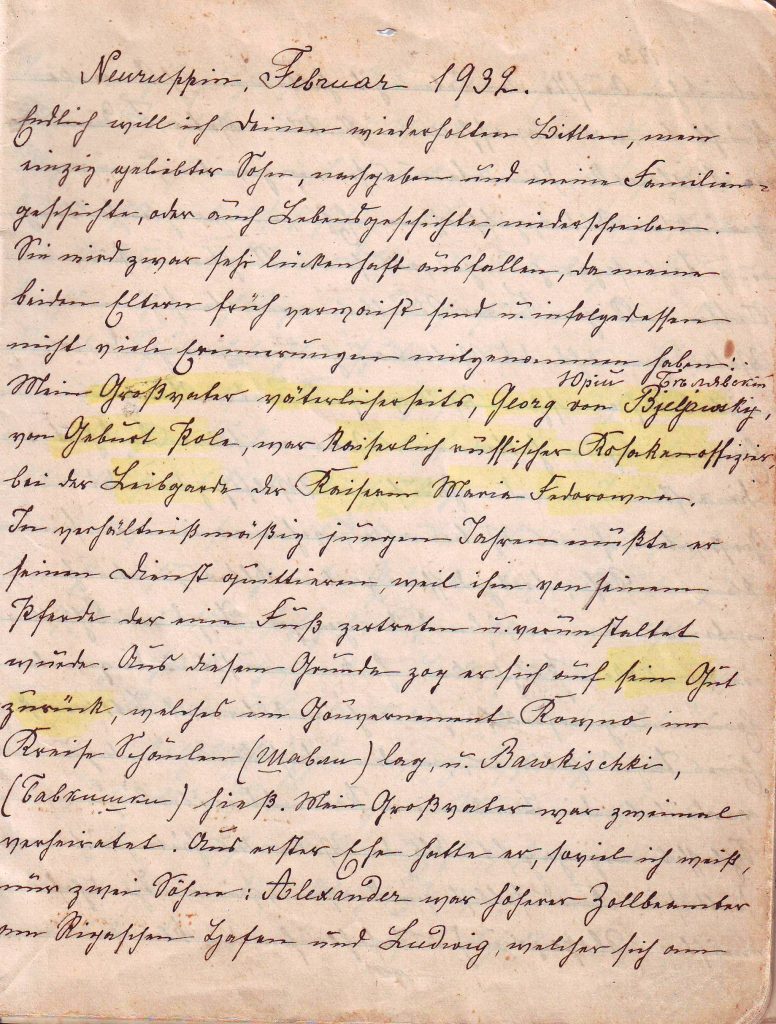 Neuruppin, Februar 1932.
Endlich will ich deinen wiederholten Bitten, mein
einzig geliebter Sohn, nachgeben und meine Familien=
geschichte, oder auch Lebensgeschichte, niederschreiben.
Sie wird zwar sehr lückenhaft ausfallen, da meine
beiden Eltern früh verwaist sind u. infolgedessen
nicht viele Erinnerungen mitgenommen haben:
Юрий Бѣлявский
Mein Großvater väterlicherseits, Georg von Bjeljawsky,
von Geburt Pole, war Kaiserlich russischer Kosakenoffizier,
bei der Leibgarde der Kaiserin Maria Fedorowna.
In verhältnißmäßig jungen Jahren mußte er
seinen Dienst quittieren, weil ihm von seinem
Pferde der eine Fuß zertreten u. verunstaltet
wurde. Aus diesem Grunde zog er sich auf sein Gut
zurück, welches im Gouvernement Kowno, im
Kreise Schaulen (Шавли) lag, u. Bawkischki,
(Бавкишки) hieß. Mein Großvater war zweimal
verheiratet. Aus erster Ehe hatte er, soviel ich weiß,
nur zwei Söhne: Alexander war höherer Zollbeamter
am Rigaschen Hafen und Ludwig, welcher sich am